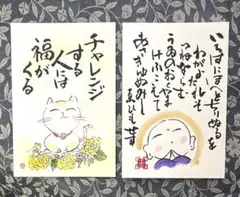 チャレンジ
する
人には
福が
くる
いろはにほへとちりぬるを
わがよたれそ
つねならむ
うゐのおくやま
けふこえて
あさきゆめみし
ゑひもせす